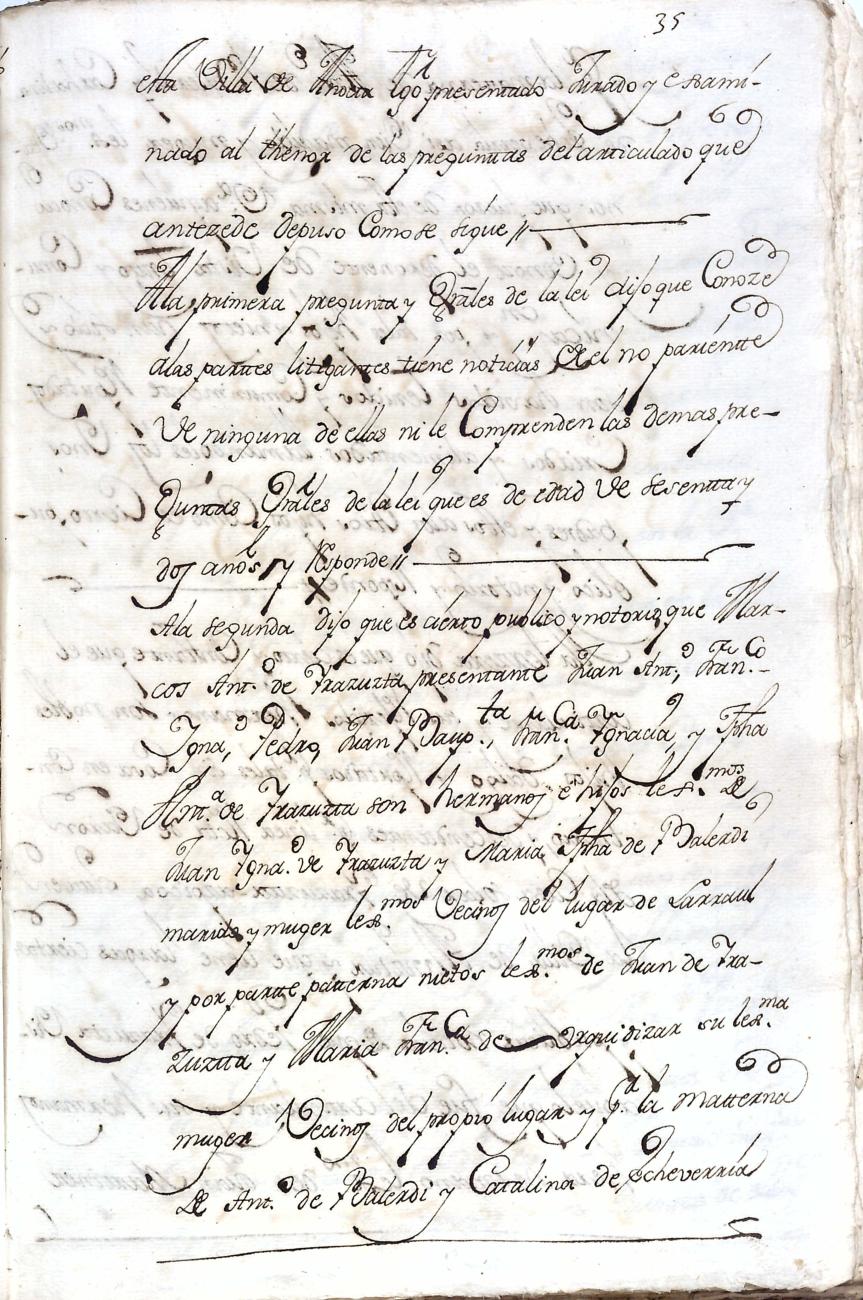 35
esta Villa de Andoain tgo presentado Jurado y exami-
nado al thenor de las preguntas del articulado que
antezede depuso Como se sigue //
A la primera pregunta y Grales de la lei dijo que Conoze
a las partes litigantes tiene noticias de el no pariente
de ninguna de ellas ni le Comprenden las demas pre-
guntas Grales de la lei que es de edad de sesenta y
dos años y Responde //
A la segunda dijo que es cierto publico y notorio que Mar-
cos Ant.o de Yrazuzta presentante Juan Ant.o, Fran.co
Ygna.o, Pedro, Juan Baup.ta, Fran.ca Ygnacia, y Jpha
Ant.a de Yrazuzta son hermanos e hijos lex.mos de
Juan Ygna.o de Yrazuzta y Maria Jpha de Balerdi
marido y muger lex.mos Vecinos del lugar de Larraul
y por parte paterna nietos lex.mos de Juan de Yra-
zuzta y Maria Fran.ca de Urquidizar su lex.ma
muger Vecinos del propio lugar y pr la materna
de Ant.o de Balerdi y Catalina de Echeverria